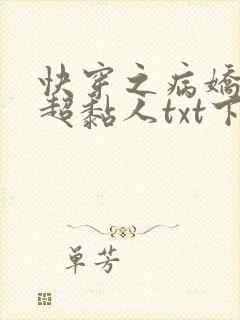 快穿之病嬌
超黏人txt下
单芳